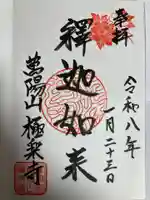 奉拝
令和八年
一月二十三日
釋迦如来
萬陽山 極楽寺